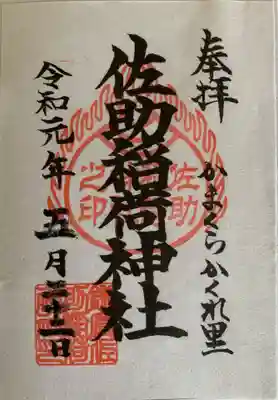 奉拝
かまくらかくれ里
佐助稲荷神社
佐助
之印
令和元年五月二十二日